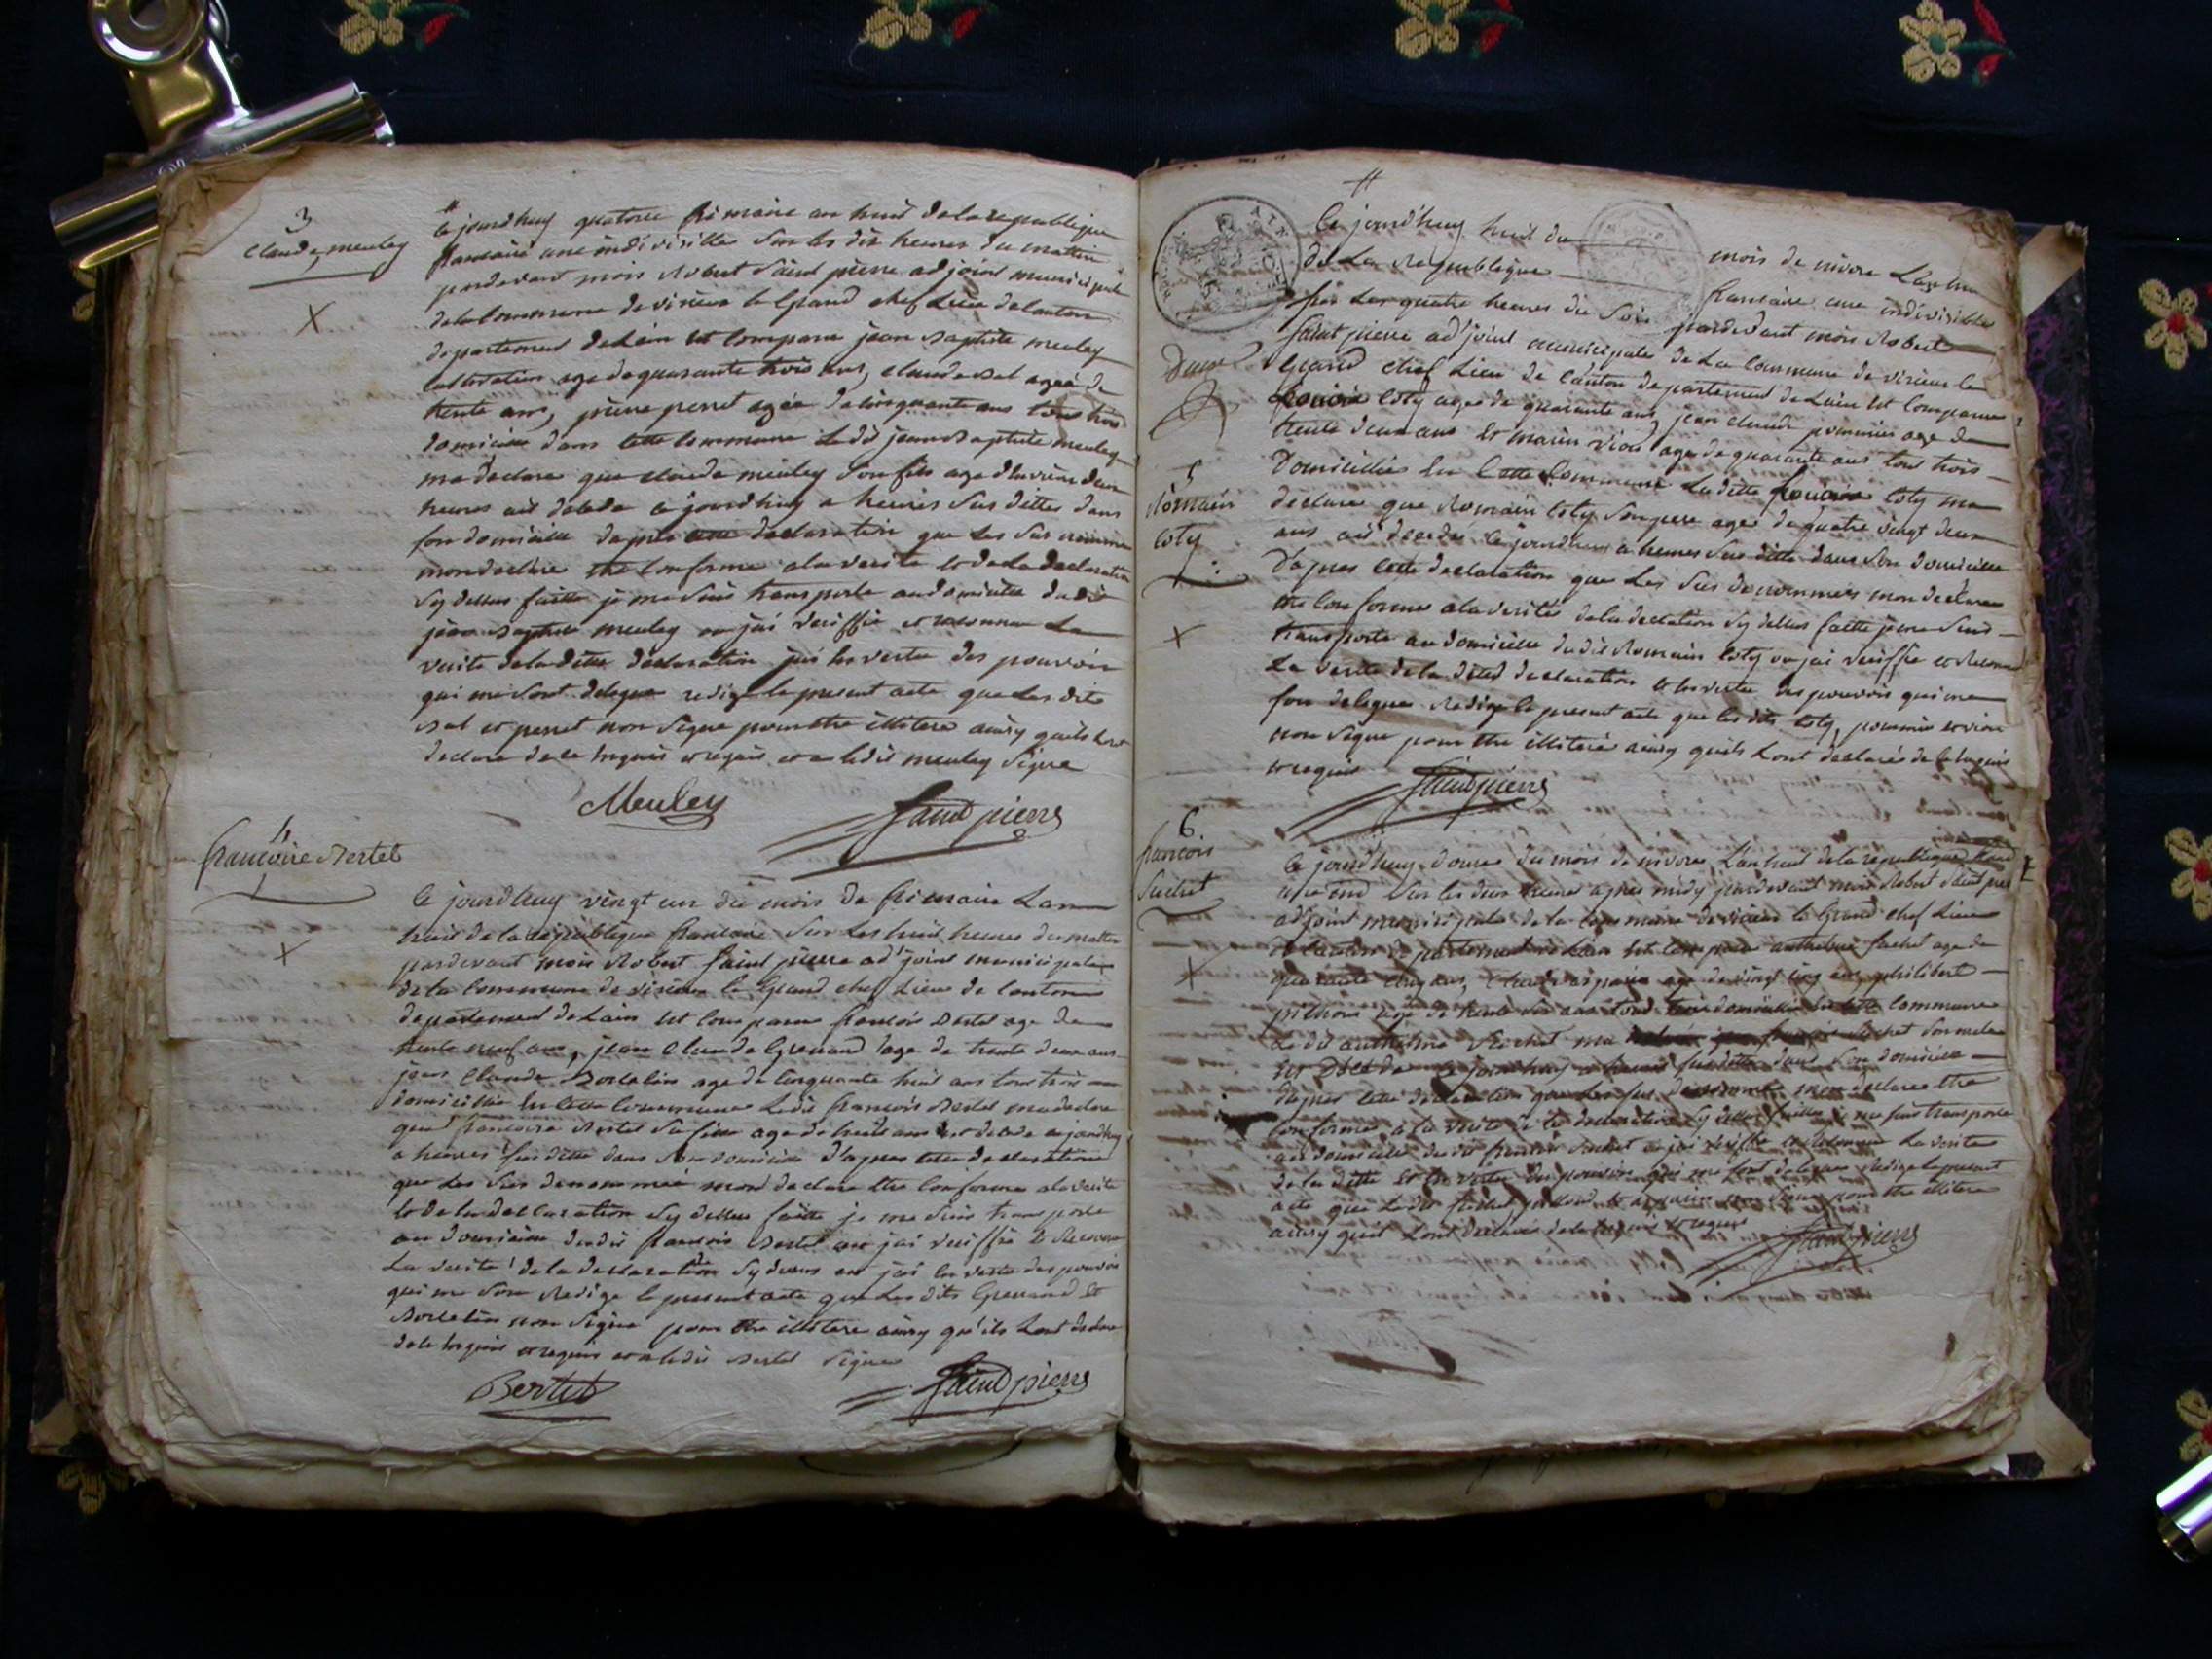 3
Claude meuley
Ce jourdhuy quatorze frimaire an huit de la republique
francaise une indivisible sur les dix heures du mattin
pardevant mois Robert Saint pierre adjoint municipale
de la Commune de virieu le Grand chef Lieu de canton
departement de Lain est Comparu jean Baptiste meuley
cultivateur age de quarante trois ans, claude agée de
trente ans, pierre perret agée de cinquante ans tous trois
domicilié dans cette Commune Le dit jean Baptiste meuley
ma declare que claude meuley son fils age denviron deux
heures est decede ce jourdhuy a heures sus dittes dans
son domicille dapres cette declaration que Les sus nommé
mon declare etre Conforme ala verite et de La declaration
sy dessus faitte je me suis transporte au domicille du dit
jean Baptiste meuley ou jai veriffié et reconnu La
verite de la ditte declaration jai En vertu des pouvoir
qui me sont delegué redige le present acte que Les dits
et perret non signe pour etre illitere ainsy quils Lont
declare de ce Enquis et requis et a ledit meuley signe
Meuley Saint pierre
4
francoise Bertet
Ce jourdhuy vingt un du mois de frimaire Lan
huit de la republique francaise Sur Les huit heures du mattin
pardevant mois Robert Saint pierre ad'joint municipale
de la Commune de virieu le Grand chef Lieu de canton
departement de Lain est Comparu francois Bertet age de
trente neuf ans, jean Claude Grenand age de trente deux ans
jean Claude age de Cinquante huit ans tous trois
domicillié En cette Commune Ledit francois Bertet ma declare
que francoise Bertet sa fille age de huit ans est decede cejourdhuy
a heures sus ditte dans son domicille D'apres cette declaration
que Les sus denommé mont declare etre Conforme ala verite
et de la declaration sy dessus faitte je me suis transporte
au domicille du dit francois Bertet ou jai veriffié et Reconnu
La verite de la declaration sy dessus et jai En vertu des pouvoir
qui me sont Redige le present acte que Les dits Grenand et
non signe pour etre illitere ainsy qu'ils Lont declare
de ce Enquis et requis et a ledit Bertet signe
Bertet Saint pierre
Ce jourd'huy huit du mois de nivose Lan huit
de La Republique francaise une indivisible
sur Les quatre heures du Soir pardevant mois Robert
Saint pierre ad'joint municipale de La Commune de virieu le
Grand chef Lieu de Canton departement de Lain est Comparu
coty agée de quarante ans, jean claude pommier age de
trente deux ans et marin viou age de quarante ans tous trois
Domicilliés En Cette Commune La ditte coty ma
declare que Romain Coty Son pere agé de quatre vingt deux
ans est decedé ce jourdhuy a heures sus ditte dans Son domicille
D'apres cette declaration que Les sus denommés mon declare
etre Conforme ala verités de la declation sy dessus faitte je me suis
transporte au domicille du dit Romain Coty ou jai veriffie et Reconnu
La verite de la ditte declaration et En vertu des pouvoirs qui me
son delegues Redige le present acte que les dits Coty, pommier et viou
non signe pour etre illiteré ainsy quils Lont declarés de ce Enquis
et requis Saint pierre
5
Romain
Coty
6
francois
Suchet
Ce jourd'huy douze du mois de nivose Lan huit de la republique
une ind sur les deux heures apres midy pardevant mois Robert Saint pierre
adjoint municipale de la Commune de virieu le Grand chef Lieu
de Canton departement de Lain est Comparu anthelme Suchet age de
quarante cinq ans, Claude age de vingt cinq ans, philibert
age de trente six ans tous trois domicillié En cette Commune
Le dit anthelme Suchet ma
est decede ce jourdhuy a heures sus ditte dans Son domicille
Dapres cette declaration que Les sus denommé mon declare etre
Conforme a la verite de la declaration sy dessus faitte je me suis transporte
au domicille du dit Suchet ou jai veriffie et Reconnu La verite
de la ditte et En vertu des pouvoirs qui me sont delegues Redige le present
acte que Le dit Suchet, non signe pour etre illitere
ainsy quil Lont declaré de ce Enquis et requis
Saint pierre